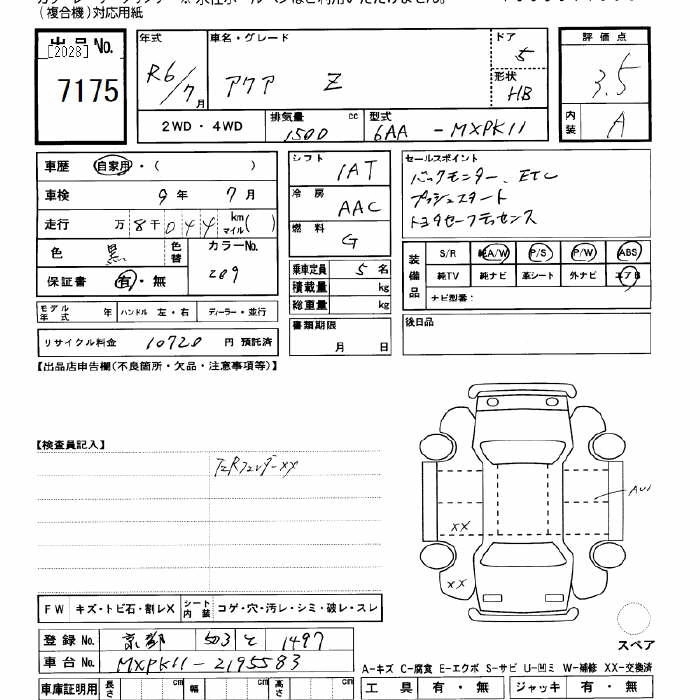 (複合機)対応用紙
出品No.
[2028]
7175
年式
R6/7月
車名・グレード
アクア Z
ドア
5
形状
HB
評価点
3.5
2WD・4WD
排気量 cc
1500
型式
6AA-MXPK11
内装
A
車歴 自家用・( )
車検 9年 7月
走行 万8千044 km マイル( )
色 黒 色替
カラーNo.
209
保証書 有・無
シフト
IAT
冷房
AAC
燃料
G
乗車定員 5名
積載量 kg
総重量 kg
セールスポイント
バックモニター、ETC
プッシュスタート
トヨタセーフティセンス
装備品
S/R 純A/W P/S P/W ABS
純TV 純ナビ 革シート 外ナビ エアB
ナビ型番:
モデル年式 年 ハンドル 左・右 ディーラー・並行
リサイクル料金 10720 円 預託済
書類期限
月 日
後日品
【出品店申告欄(不良箇所・欠品・注意事項等)】
【検査員記入】
左Rフェンダーxx
AUI
XX
XX
FW キズ・トビ石・割レX シート内装 コゲ・穴・汚レ・シミ・破レ・スレ
スペア
登録No. 京都 503 と 1497
車台No. MXPK11-2195583
A-キズ C-腐食 E-エクボ S-サビ U-凹ミ W-補修 XX-交換済
車庫証明用 長さ cm 幅 cm 高さ cm
工具 有・無 ジャッキ 有・無